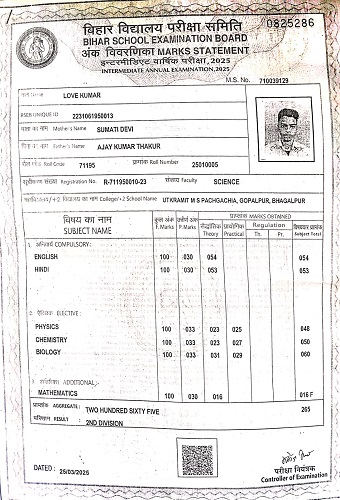 0825286
बिहार विद्यालय परीक्षा समिति
BIHAR SCHOOL EXAMINATION BOARD
अंक विवरणिका MARKS STATEMENT
इन्टरमीडिएट वार्षिक परीक्षा, 2025
INTERMEDIATE ANNUAL EXAMINATION, 2025
M.S. No. 710039129
Name LOVE KUMAR
BSEB UNIQUE ID 2231061950013
माता का नाम Mother's Name SUMATI DEVI
पिता का नाम Father's Name AJAY KUMAR THAKUR
Roll Code 71195 प्राप्तांक Roll Number 25010005
सूचीकरण संख्या Registration No. R-711950010-23 संकाय Faculty SCIENCE
का नाम College/+2 School Name UTKRAMIT M S PACHGACHIA, GOPALPUR, BHAGALPUR
विषय का नाम SUBJECT NAME कुल अंक F. Marks उत्तीर्ण अंक P. Marks प्राप्तांक MARKS OBTAINED
सैद्धांतिक Theory प्रायोगिक Practical Regulation Th. Pr. विषयवार प्राप्तांक Subject Total
1. अनिवार्य COMPULSORY:
ENGLISH 100 030 054 054
HINDI 100 030 053 053
2. ऐच्छिक ELECTIVE:
PHYSICS 100 033 023 025 048
CHEMISTRY 100 033 023 027 050
BIOLOGY 100 033 031 029 060
3. अतिरिक्त ADDITIONAL:-
MATHEMATICS 100 030 016 016 F
प्राप्तांक AGGREGATE: TWO HUNDRED SIXTY FIVE 265
परिणाम RESULT : 2ND DIVISION
DATED : 25/03/2025
परीक्षा नियंत्रक
Controller of Examination